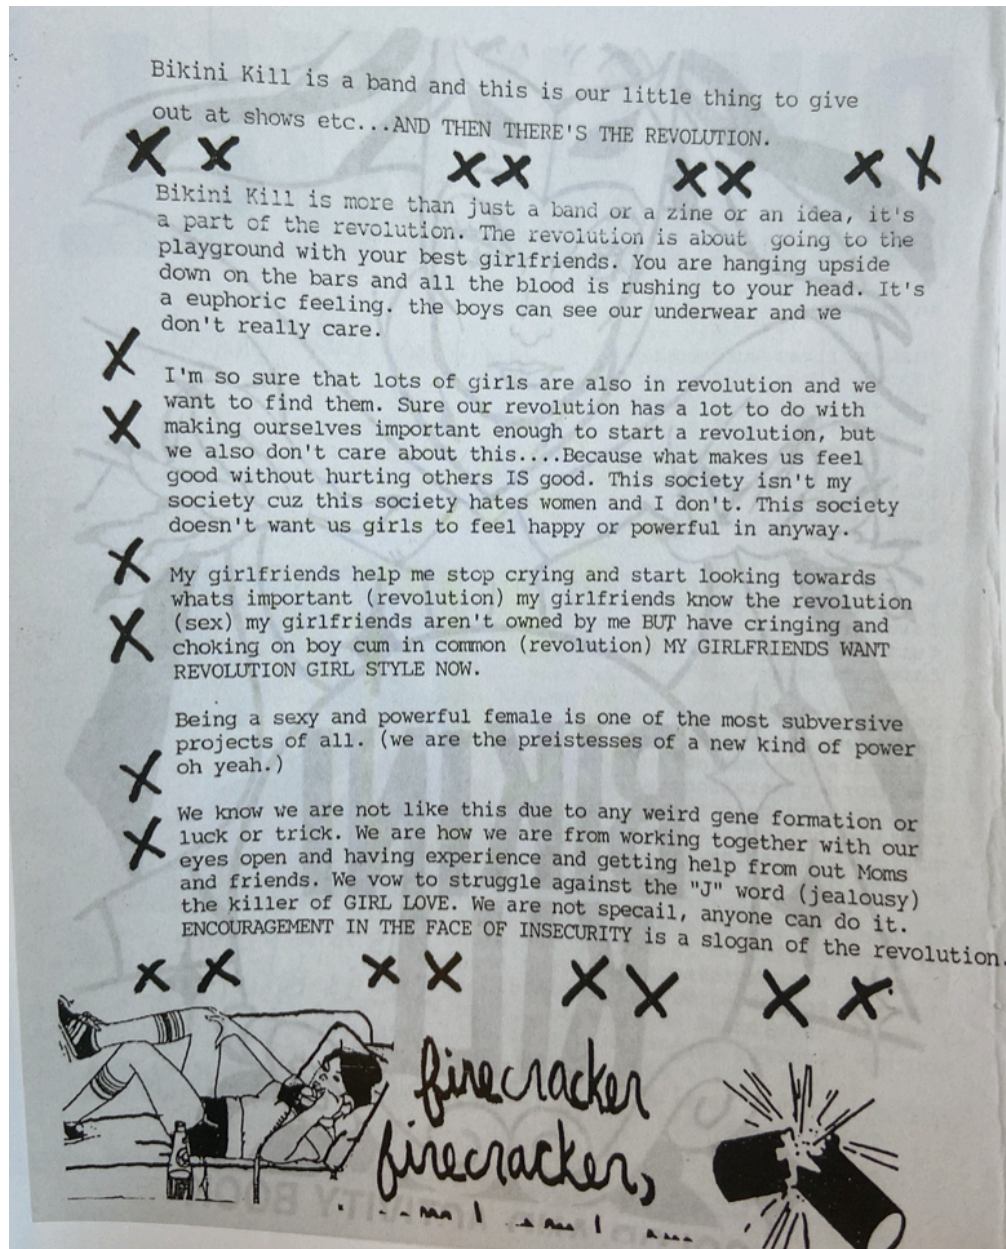 Bikini Kill is a band and this is our little thing to give
out at shows etc...AND THEN THERE'S THE REVOLUTION.
X X X X X X X X
Bikini Kill is more than just a band or a zine or an idea, it's
a part of the revolution. The revolution is about going to the
playground with your best girlfriends. You are hanging upside
down on the bars and all the blood is rushing to your head. It's
a euphoric feeling. the boys can see our underwear and we
don't really care.
X
I'm so sure that lots of girls are also in revolution and we
want to find them. Sure our revolution has a lot to do with
X
making ourselves important enough to start a revolution, but
we also don't care about this....Because what makes us feel
good without hurting others IS good. This society isn't my
society cuz this society hates women and I don't. This society
doesn't want us girls to feel happy or powerful in anyway.
X
My girlfriends help me stop crying and start looking towards
whats important (revolution) my girlfriends know the revolution
(sex) my girlfriends aren't owned by me BUT have cringing and
X
choking on boy cum in common (revolution) MY GIRLFRIENDS WANT
REVOLUTION GIRL STYLE NOW.
Being a sexy and powerful female is one of the most subversive
projects of all. (we are the preistesses of a new kind of power
oh yeah.)
X
We know we are not like this due to any weird gene formation or
luck or trick. We are how we are from working together with our
X
eyes open and having experience and getting help from out Moms
and friends. We vow to struggle against the "J" word (jealousy)
the killer of GIRL LOVE. We are not specail, anyone can do it.
ENCOURAGEMENT IN THE FACE OF INSECURITY is a slogan of the revolution.
X X X X X X X X
firecracker
firecracker,